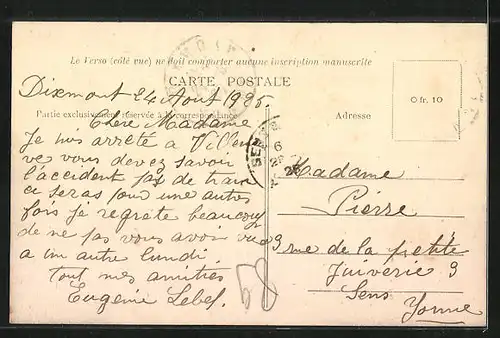 Le Verso (côté vue) ne doit comporter aucune inscription manuscrite
CARTE POSTALE
Partie exclusivement réservée à la correspondance
Adresse
0 fr. 10
Dixmont 24 Aout 1925.
Chère Madame
Je suis arrété a Villen
ve vous devez savoir
l'accident pas de train
ce seras pour une autres
fois je regrete beaucoup
de ne pas vous avoir vue
a un autre lundi.
Tout mes amitiés
Eugénie Lebef.
Madame
Pierre
9 rue de la petite
Juiverie 9
Sens Yonne
SENS